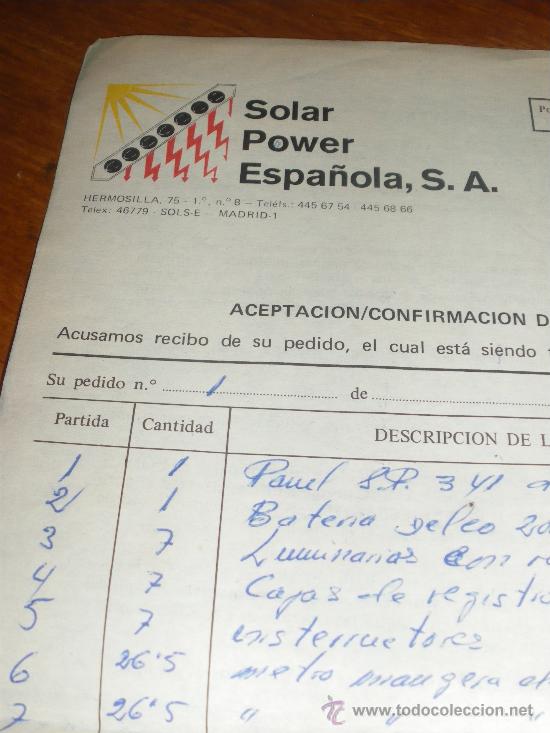 Solar
Power
Española, S. A.
HERMOSILLA, 75 - 1.º, n.º 8 - Teléfs.: 445 67 54 - 445 68 66
Telex: 46779 - SOLS-E - MADRID-1
ACEPTACION/CONFIRMACION D
Acusamos recibo de su pedido, el cual está siendo
Su pedido n.º 1 de
Partida Cantidad DESCRIPCION DE L
1 1 Panel S.P. 341
2 1 Bateria Delco 20
3 7 Luminarias con
4 7 Cajas de registro
5 7 insterructores
6 26'5 metro manguera
7 26'5 " " "
www.todocoleccion.net